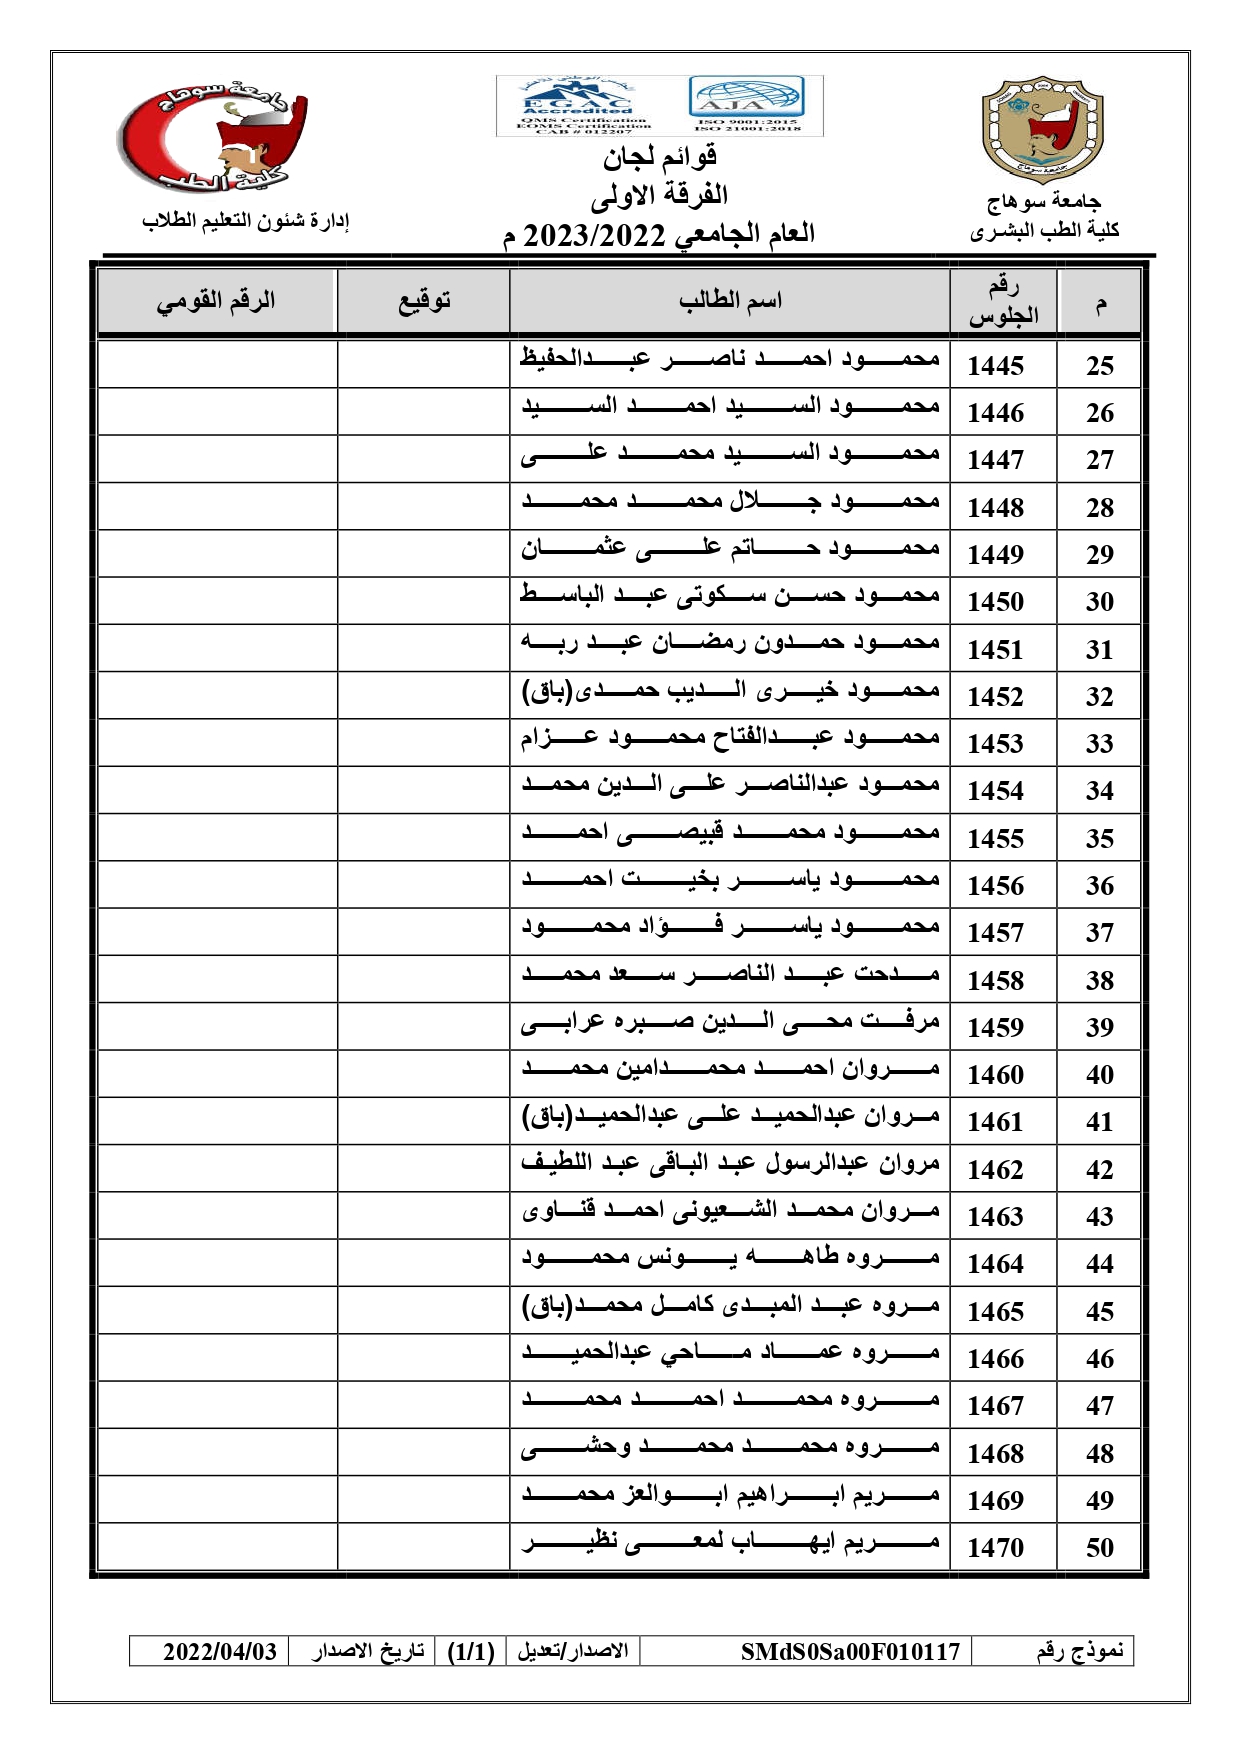 جامعة سوهاج
كلية الطب
إدارة شئون التعليم الطلاب
EGAC
Accredited
QMS Certification
EOMS Certification
CAB # 012207
AJA
ISO 9001:2015
ISO 21001:2018
قوائم لجان
الفرقة الاولى
العام الجامعي 2023/2022 م
جامعة سوهاج
جامعة سوهاج
كلية الطب البشرى
م رقم الجلوس اسم الطالب توقيع الرقم القومي
25 1445 محمود احمد ناصر عبدالحفيظ
26 1446 محمود السيد احمد السيد
27 1447 محمود السيد محمد على
28 1448 محمود جلال محمد محمد
29 1449 محمود حاتم على عثمان
30 1450 محمود حسن سكوتى عبد الباسط
31 1451 محمود حمدون رمضان عبد ربه
32 1452 محمود خيرى الديب حمدى(باق)
33 1453 محمود عبدالفتاح محمود عزام
34 1454 محمود عبدالناصر على الدين محمد
35 1455 محمود محمد قبيصى احمد
36 1456 محمود ياسر بخيت احمد
37 1457 محمود ياسر فؤاد محمود
38 1458 مدحت عبد الناصر سعد محمد
39 1459 مرفت محى الدين صبره عرابى
40 1460 مروان احمد محمدامين محمد
41 1461 مروان عبدالحميد على عبدالحميد(باق)
42 1462 مروان عبدالرسول عبد الباقى عبد اللطيف
43 1463 مروان محمد الشعيونى احمد قناوى
44 1464 مروه طاهه يونس محمود
45 1465 مروه عبد المبدى كامل محمد(باق)
46 1466 مروه عماد ماحي عبدالحميد
47 1467 مروه محمد احمد محمد
48 1468 مروه محمد محمد وحشى
49 1469 مريم ابراهيم ابوالعز محمد
50 1470 مريم ايهاب لمعى نظير
نموذج رقم SMdS0Sa00F010117 الاصدار/تعديل (1/1) تاريخ الاصدار 2022/04/03